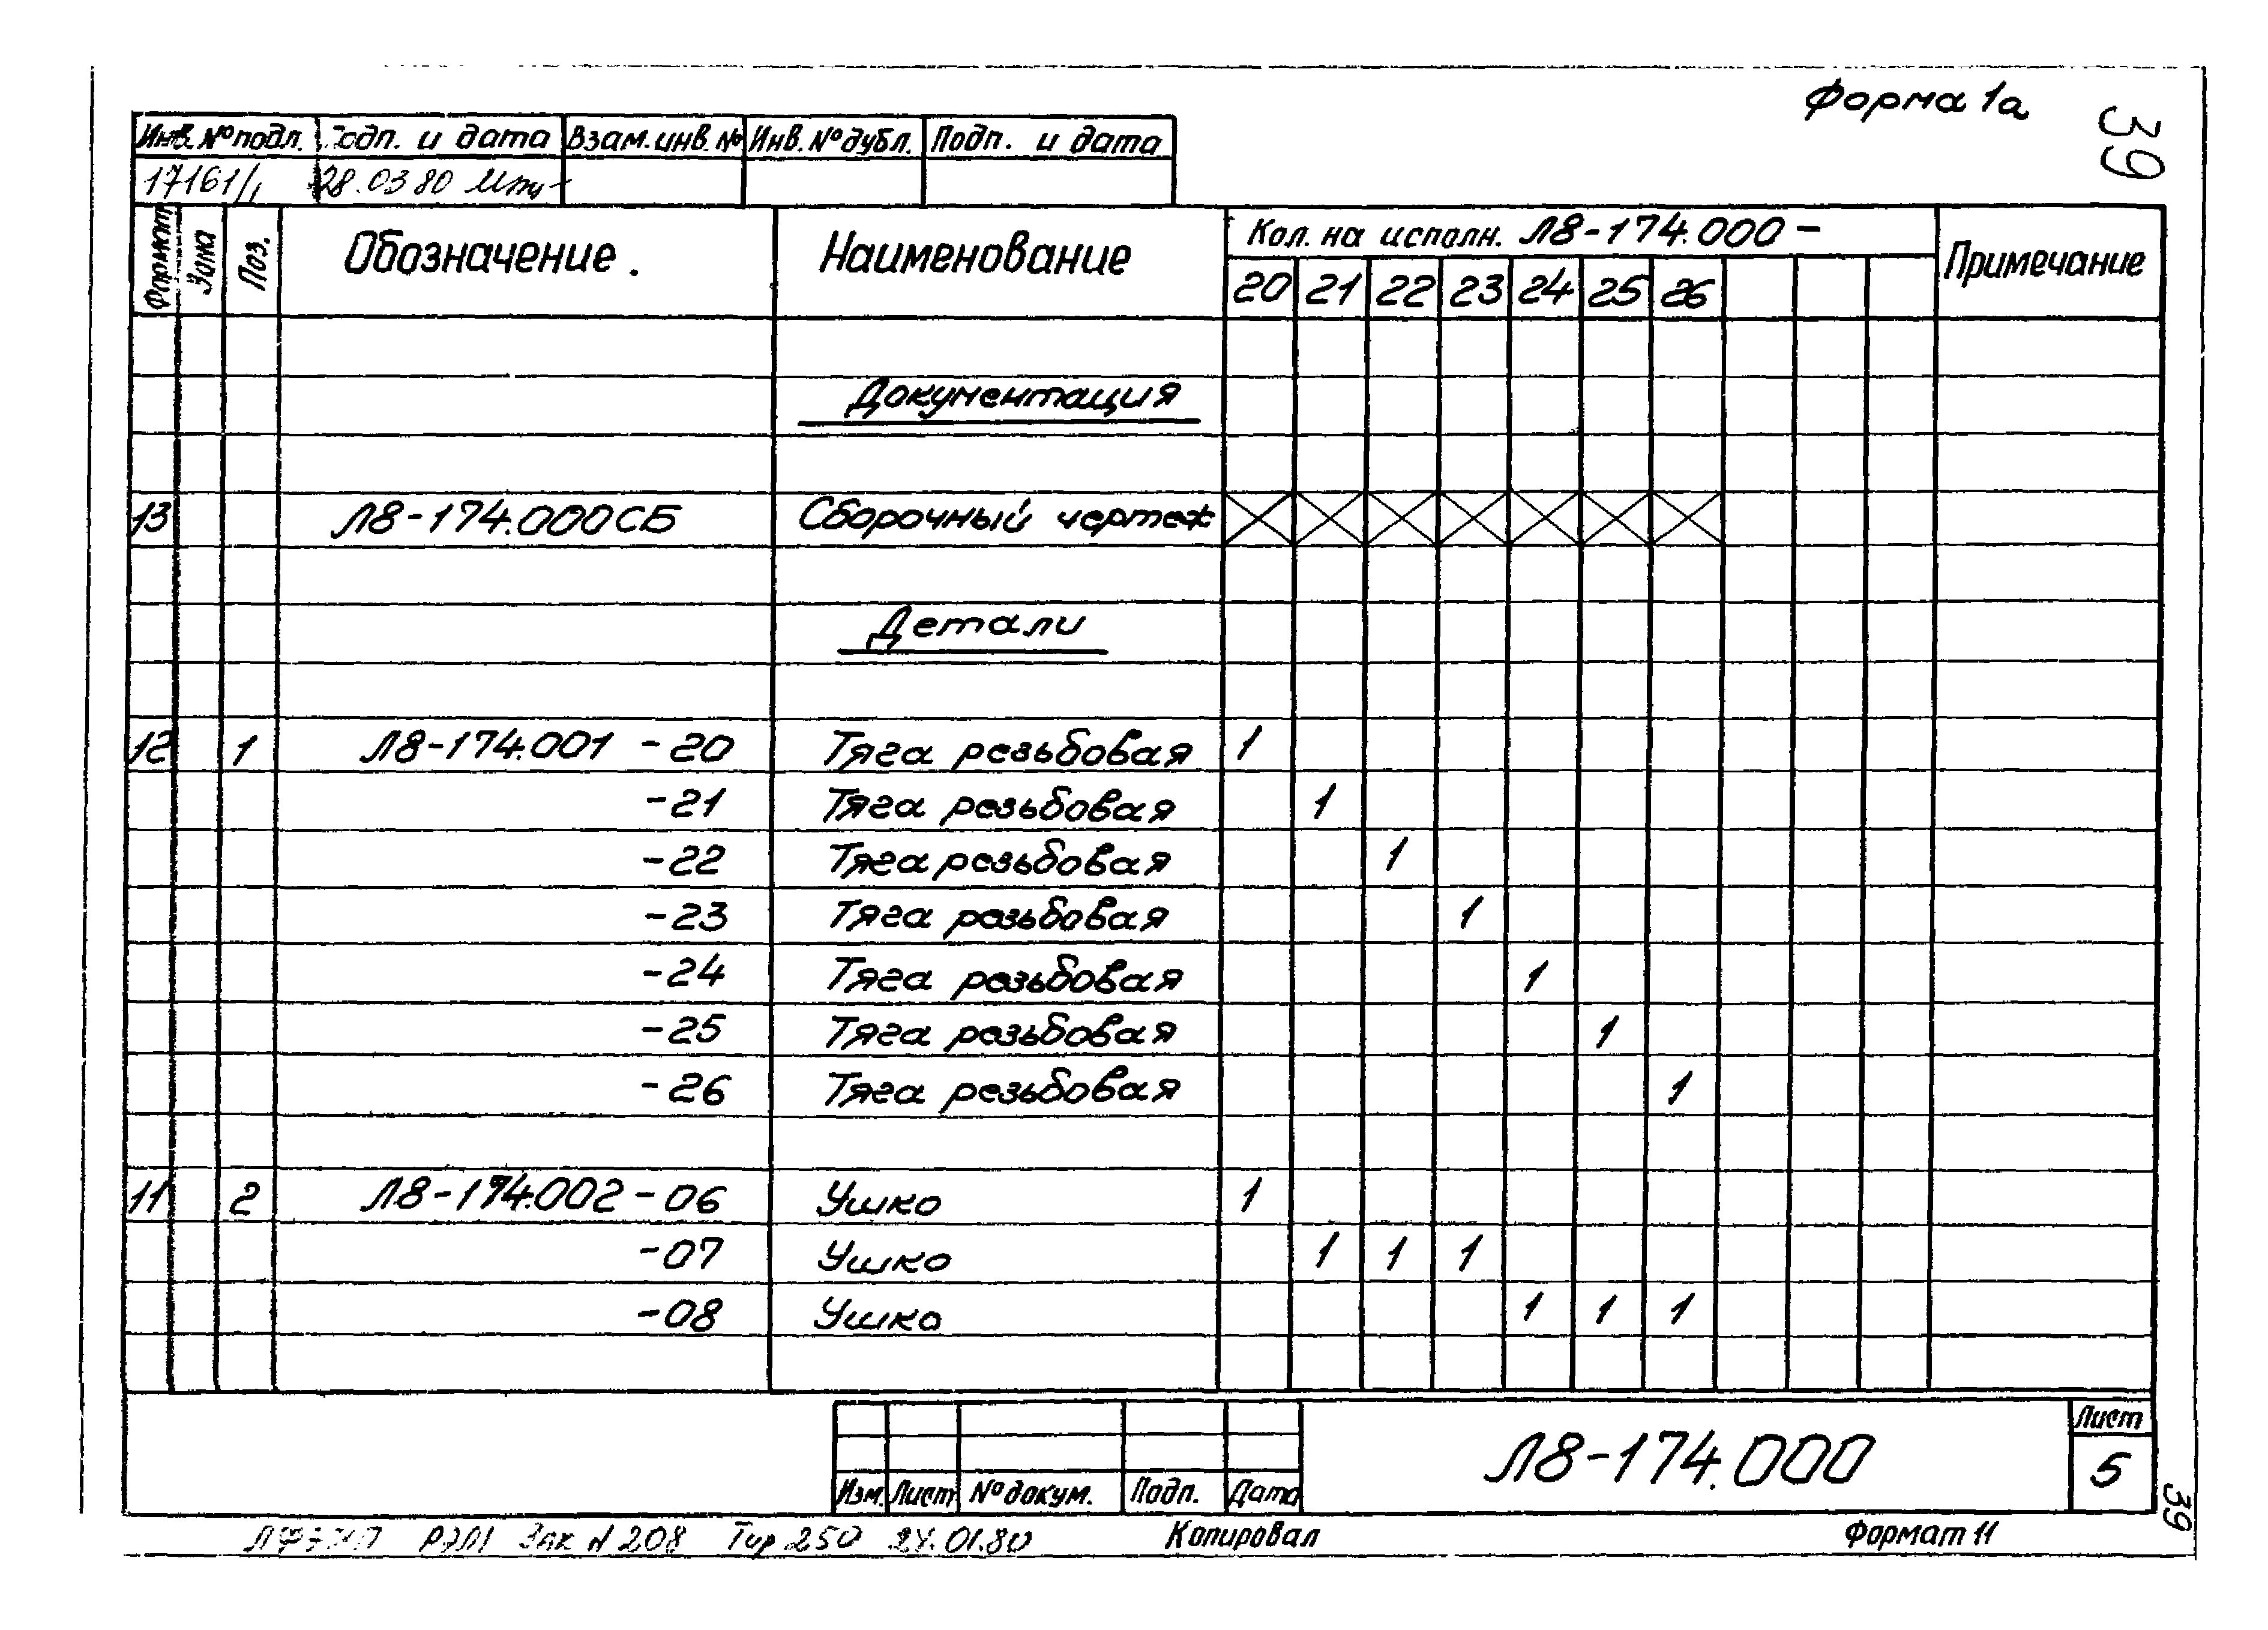 Форма 1а
39
Инв. № подл. Подп. и дата Взам. инв. № Инв. № дубл. Подп. и дата
17161/1 28.03 80
Формат Зона Поз. Обозначение. Наименование Кол. на исполн. Л8-174.000 - Примечание
20 21 22 23 24 25 26
Документация
13 Л8-174.000СБ Сборочный чертеж
Детали
12 1 Л8-174.001 -20 Тяга резьбовая 1
-21 Тяга резьбовая 1
-22 Тяга резьбовая 1
-23 Тяга резьбовая 1
-24 Тяга резьбовая 1
-25 Тяга резьбовая 1
-26 Тяга резьбовая 1
11 2 Л8-174.002 - 06 Ушко 1
-07 Ушко 1 1 1
-08 Ушко 1 1 1
Л8-174.000
Лист
5
Изм. Лист № докум. Подп. Дата
Зак N 208 Тир 250 24.01.80 Копировал Формат 11
39